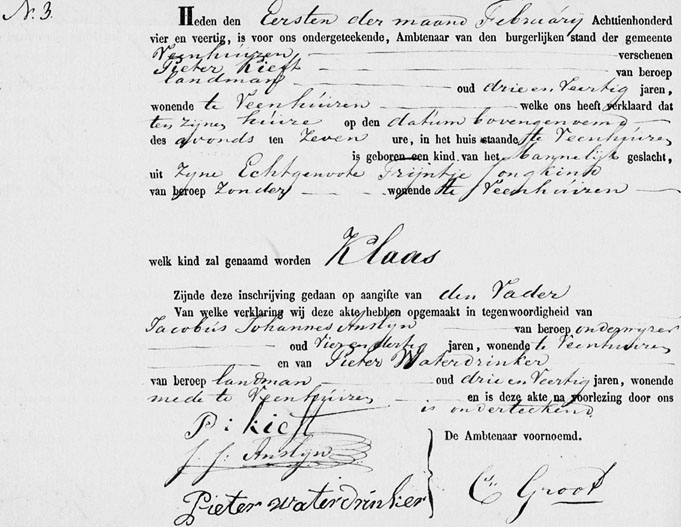 N. 3.
Heden den Eersten der maand February Achttienhonderd
vier en veertig, is voor ons ondergeteekende, Ambtenaar van den burgerlijken stand der gemeente
Veenhuizen verschenen
Pieter Kieft van beroep
landman oud drie en Veertig jaren,
wonende te Veenhuizen welke ons heeft verklaard dat
ten zijnen huize op den datum bovengenoemd
des avonds ten Zeven ure, in het huis staande te Veenhuizen
is geboren een kind van het mannelijk geslacht,
uit Zyne Echtgenoote Trijntje Jongkind
van beroep Zonder wonende te Veenhuizen
welk kind zal genaamd worden Klaas
Zijnde deze inschrijving gedaan op aangifte van den Vader
Van welke verklaring wij deze akte hebben opgemaakt in tegenwoordigheid van
Jacobus Johannes Anslyn van beroep onderwyzer
oud Vier en dertig jaren, wonende te Veenhuizen
en van Pieter Waterdrinker
van beroep landman oud drie en Veertig jaren, wonende
mede te Veenhuizen en is deze akte na voorlezing door ons
is onderteekend.
P: kieft
J. J: Anslyn
Pieter waterdrinker
De Ambtenaar voornoemd.
Cn Groot